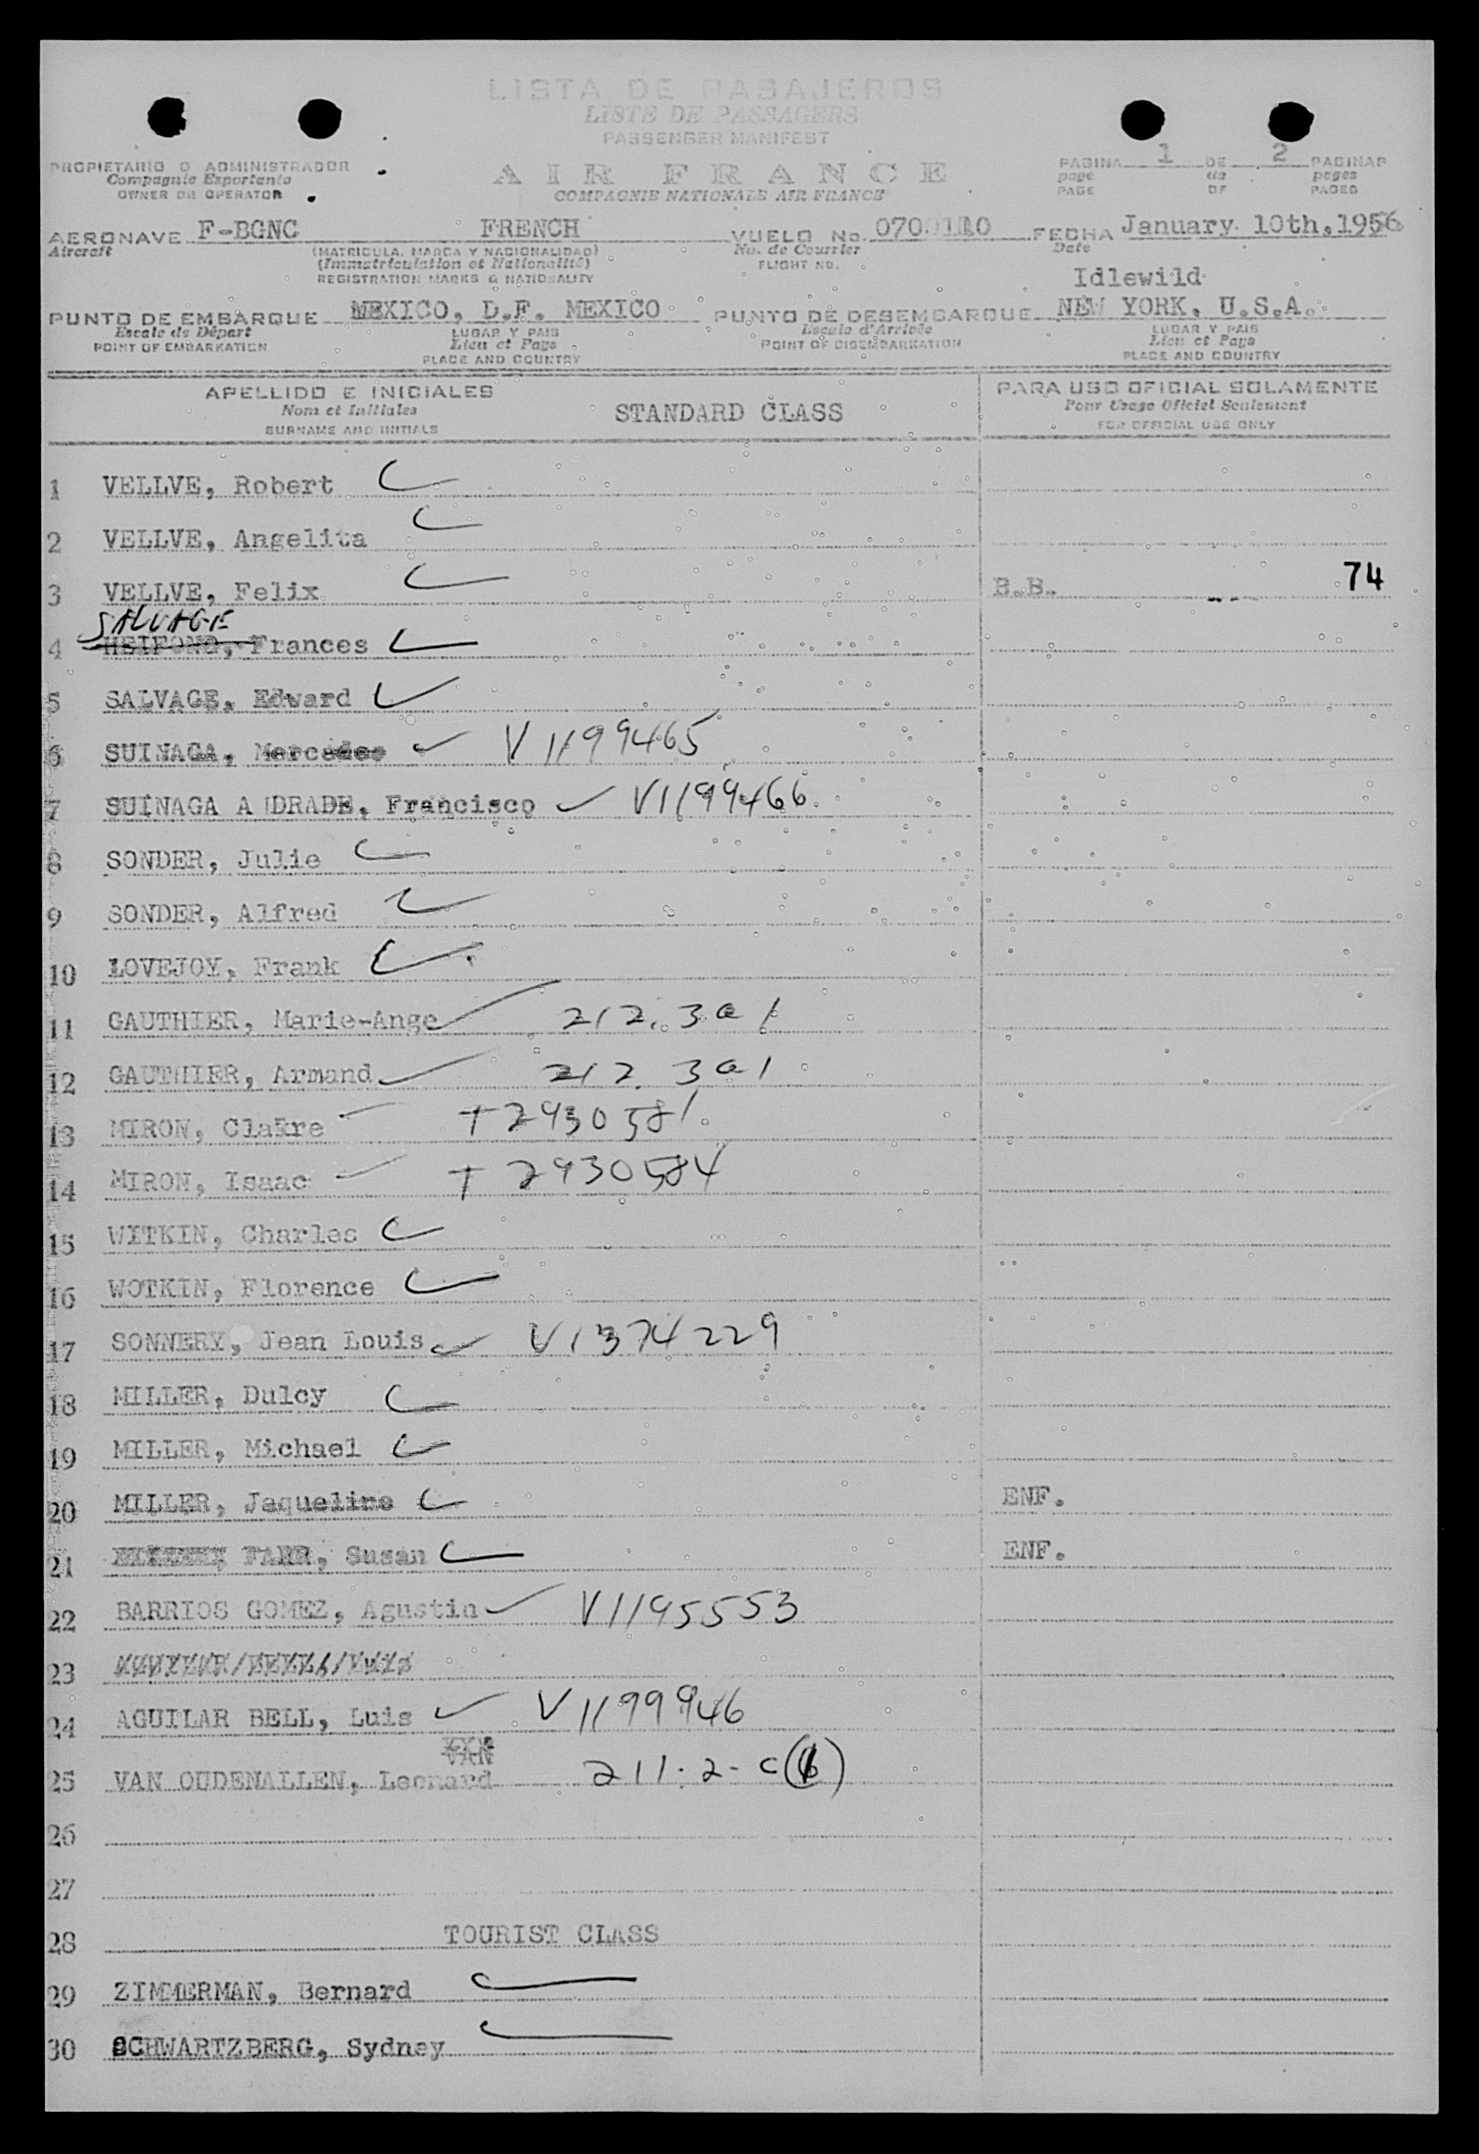 LISTA DE PASAJEROS
LISTE DE PASSAGERS
PASSENGER MANIFEST
PROPIETARIO O ADMINISTRADOR
Compagnie Exportante
OWNER OR OPERATOR
AIR FRANCE
COMPAGNIE NATIONALE AIR FRANCE
PAGINA 1 DE 2 PAGINAS
page de pages
PAGE OF PAGES
AERONAVE F-BGNC FRENCH VUELO No. FECHA January 10th, 1956
Aircraft (MATRICULA, MARCA Y NACIONALIDAD) No. de Courrier Date
(Immatriculation et Nationalité) FLIGHT NO.
REGISTRATION MARKS & NATIONALITY
Idlewild
PUNTO DE EMBARQUE MEXICO, D.F. MEXICO PUNTO DE DESEMBARQUE NEW YORK, U.S.A.
Escale de Départ LUGAR Y PAIS Escale d'Arrivée LUGAR Y PAIS
POINT OF EMBARKATION Lieu et Pays POINT OF DISEMBARKATION Lieu et Pays
PLACE AND COUNTRY PLACE AND COUNTRY
APELLIDO E INICIALES PARA USO OFICIAL SOLAMENTE
Nom et Initiales STANDARD CLASS Pour Usage Officiel Seulement
SURNAME AND INITIALS FOR OFFICIAL USE ONLY
1 VELLVE, Robert
2 VELLVE, Angelita
3 VELLVE, Felix B.B. 74
SALVAGE
4 HEIFONG, Frances
5 SALVAGE, Edward
6 SUINAGA, Mercedes V1199465
7 SUINAGA A DRADE, Francisco V1199466
8 SONDER, Julie
9 SONDER, Alfred
10 LOVEJOY, Frank
11 GAUTHIER, Marie-Ange 212.3a1
12 GAUTHIER, Armand 212.3a1
13 MIRON, Claire T2930581
14 MIRON, Isaac T2930584
15 WITKIN, Charles
16 WOTKIN, Florence
17 SONNERY, Jean Louis V1374229
18 MILLER, Dulcy
19 MILLER, Michael
20 MILLER, Jaqueline ENF.
21 FARR, Susan ENF.
22 BARRIOS GOMEZ, Agustin V1195553
23
24 AGUILAR BELL, Luis V1199946
VAN
25 VAN OUDENALLEN, Leonard 211.2-c(6)
26
27
28 TOURIST CLASS
29 ZIMMERMAN, Bernard
30 SCHWARTZBERG, Sydney